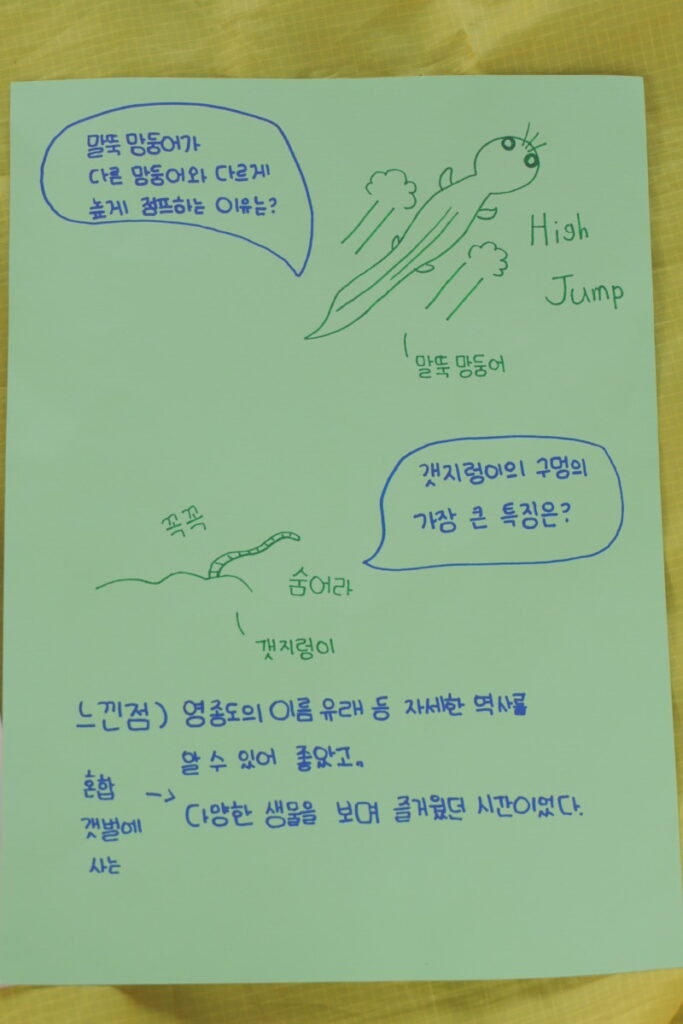 말뚝 망둥어가
다른 망둥어와 다르게
높게 점프하는 이유는?
High
Jump
말뚝 망둥어
갯지렁이의 구멍의
가장 큰 특징은?
꼭꼭
숨어라
갯지렁이
느낀점) 영종도의 이름 유래 등 자세한 역사를
알 수 있어 좋았고.
혼합
갯벌에
사는
→ 다양한 생물을 보며 즐거웠던 시간이었다.